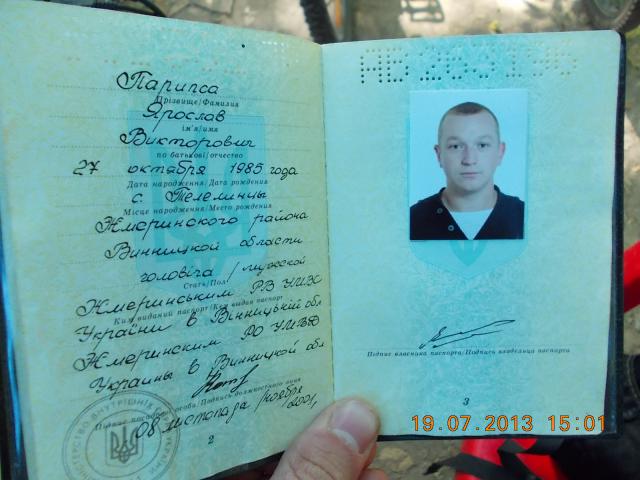 Парипса
Прізвище/Фамилия
Ярослав
ім'я/имя
Викторович
по батькові/отчество
27 октября 1985 года
Дата народження/Дата рождения
с. Телелинцы
Місце народження/Место рождения
Жмеринского района
Винницкой области
чоловіча / мужской
Стать/Пол
Жмеринським РВ УМВС
Ким виданий паспорт/Кем выдан паспорт
України в Вінницькій обл
Жмеринским РО УМВД
Украины в Винницкой обл
Підпис посадової особи/Подпись должностного лица
08 листопада/ноября
2001,
2
АВ
Підпис власника паспорта/Подпись владельца паспорта
3
19.07.2013 15:01